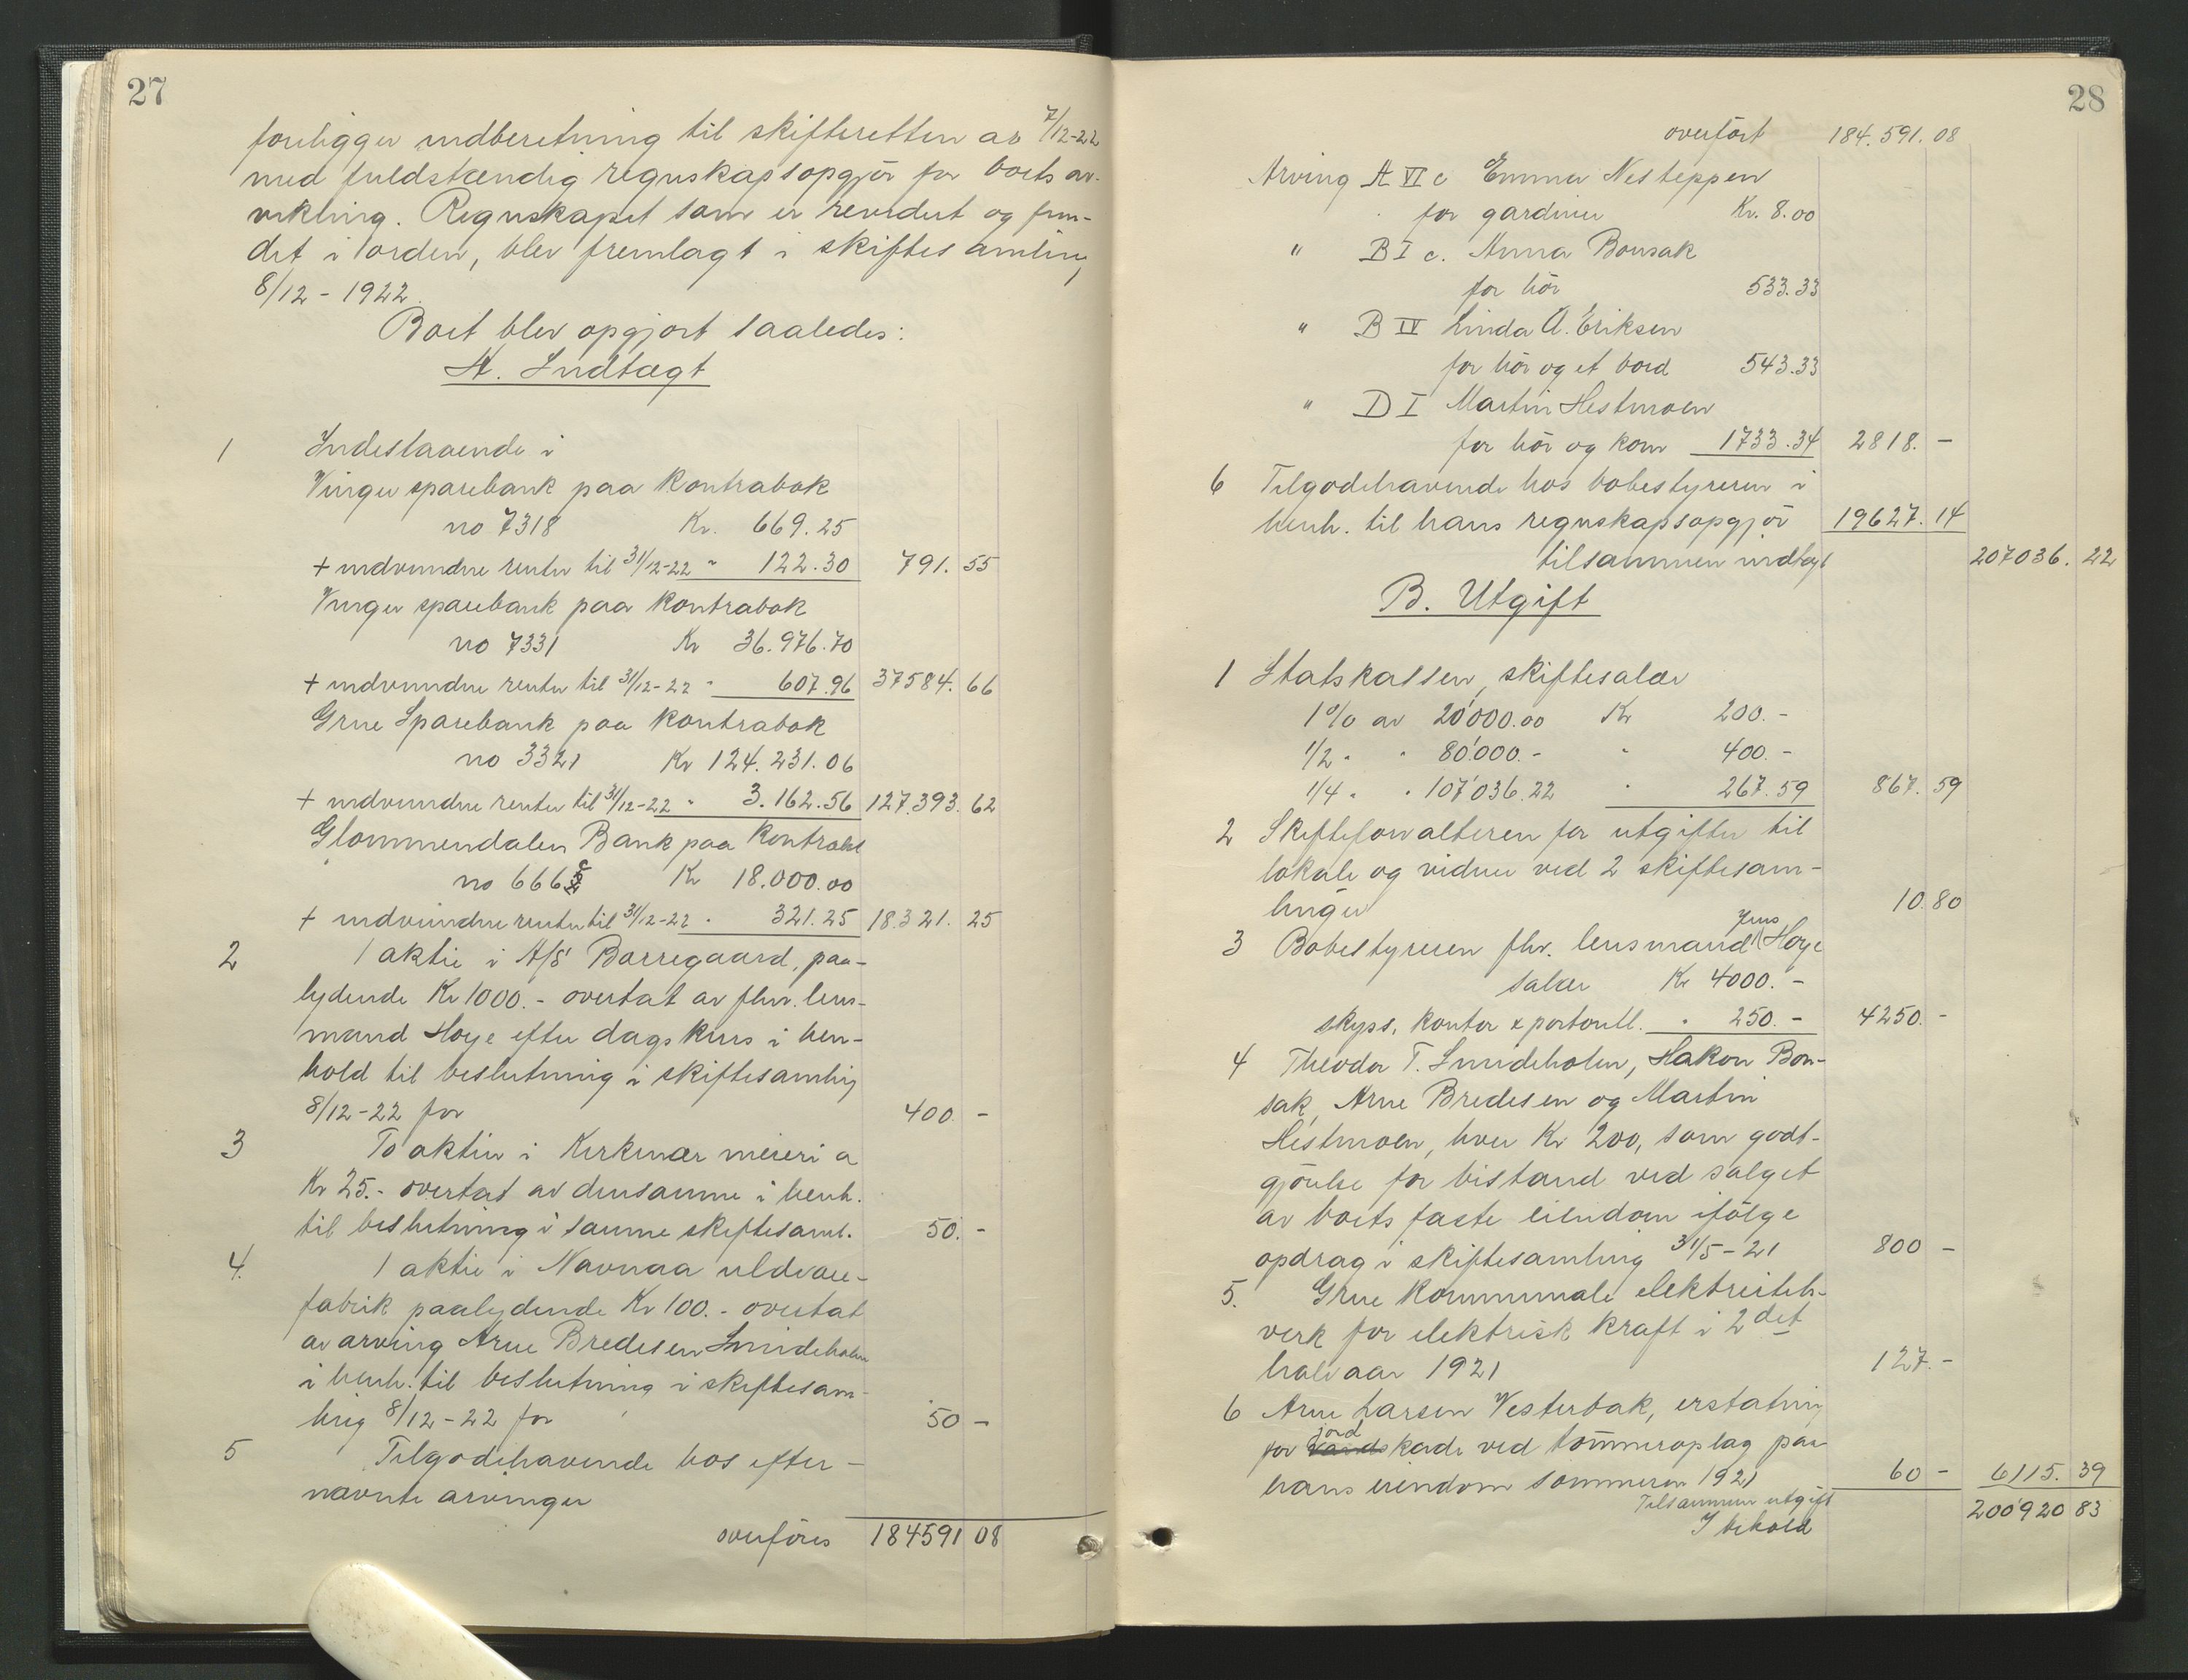 27
foreligger indberetning til skifteretten av 7/12-22
med fuldstændig regnskapsopgjör for boets av-
vikling. Regnskapet som er revidert og fun-
det i orden, blev fremlagt i skiftesamling
8/12 - 1922.
Boet blev opgjort saaledes:
A. Indtægt
1 Indestaaende i
Vinger sparebank paa kontrabok
no 7318 Kr. 669.25
+ indvundne renter til 31/12-22 " 122.30 791. 55
Vinger sparebank paa kontrabok
no 7331 Kr 36.976.70
+ indvundne renter til 31/12-22 " 607.96 37584. 66
Grue Sparebank paa kontrabok
no 3321 Kr 124.231.06
+ indvundne renter til 31/12-22 " 3.162.56 127.393. 62
Glommendalen Bank paa kontrabok
no 666 Kr 18.000.00
+ indvundne renter til 31/12-22 " 321.25 18.321. 25
2 1 aktie i A/S Borregaard, paa-
lydende Kr 1000.- overtat av fhv. lens-
mand Hoye efter dagskurs i hen-
hold til beslutning i skiftesamling
8/12-22 for 400. -
3 To aktier i Kirkenær meieri a
Kr 25.- overtat av densamme i henh.
til beslutning i samme skiftesaml. 50. -
4. 1 aktie i Navnaa uldvare-
fabrik paalydende Kr 100.- overtat
av arving Arne Bredesen Smideholen
i henh. til beslutning i skiftesam-
ling 8/12-22 for 50 -
5 Tilgodehavende hos efter-
nævnte arvinger
overföres 184591 08
28
overfört 184.591.08
Arving A VI c Emma Nesteppen
for gardiner Kr. 8.00
" B I c. Anna Bonsak
for hör 533.33
" B IV Linda A. Eriksen
for hör og et bord 543.33
" D I Martin Hestmoen
for hör og korn 1733.34 2818. -
6 Tilgodehavende hos bobestyreren i
henh. til hans regnskapsopgjör 19627.14
tilsammen indtægt 207036. 22
B. Utgift
1 Statskassen, skiftesalær
1% av 20'000.00 Kr 200.-
1/2 " " 80'000.- " 400.-
1/4 " " 107'036.22 " 267.59 867. 59
2 Skifteforvalteren for utgifter til
lokale og vidner ved 2 skiftesam-
linger 10.80
3 Bobestyreren fhv. lensmand Jens Hoye
salær Kr 4000.-
skyss, kontor & portoutl. " 250.- 4250. -
4 Theodor T. Smideholen, Hakon Bon-
sak, Arne Bredesen og Martin
Hestmoen, hver Kr 200, som godt-
gjörelse for bistand ved salget
av boets faste eiendom ifölge
opdrag i skiftesamling 31/5-21 800 -
5. Grue kommunale elektricitets-
verk for elektrisk kraft i 2det
halvaar 1921 127.-
6 Arne Larsen Vesterbak, erstatning
for jordskade ved tömmeroplag paa
hans eiendom sommeren 1921 60 - 6115. 39
Tilsammen utgift
I behold 200'920 83